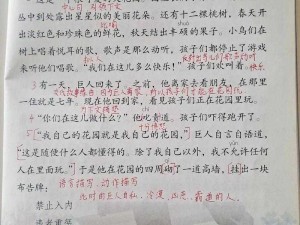 丛中到处露出星星似的美丽花朵。还有十二棵桃树，春天开
出淡红色和珍珠色的鲜花，秋天结出丰硕的果子。小鸟们在
树上唱着悦耳的歌，歌声是那么动听，孩子们都停止了游戏
来听他们唱歌。“我们在这儿多么快乐！”孩子们欢叫着。
3 有一天，巨人回来了。之前，他离家去看朋友，在那里
一住就是七年。现在他回到家，看见孩子们正在花园里玩。
4 “你们在这儿做什么？”他叱责道。孩子们吓得跑开了。
5 “我自己的花园就是我自己的花园，”巨人自言自语道，
“这是随便什么人都懂得的。除了我自己以外，我不允许任何
人在里面玩。”于是他在花园的四周砌了一道高墙，挂出一块
布告牌：
语言描写、动作描写
此时的巨人自私、冷漠、霸道的人。
禁止入内
违者重惩